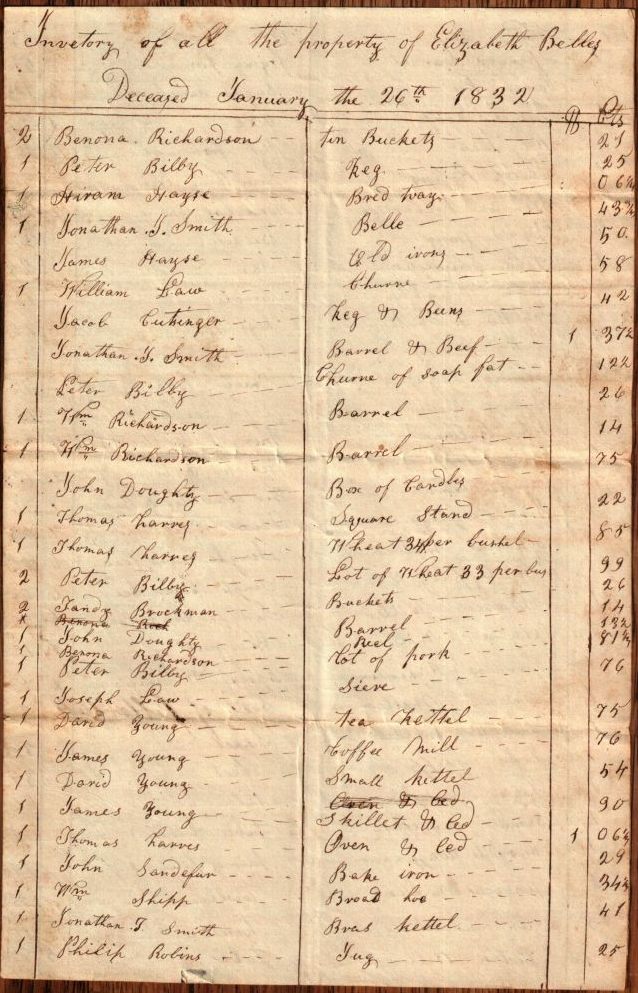 Invetory of all the property of Elizabeth Belles
Deceased January the 26th 1832
$ Cts
2 Benona Richardson tin Buckets 21
1 Peter Bilby Keg 25
1 Hiram Hayse Bred tray 06¼
1 Jonathan J. Smith Belle 43¾
James Hayse Old irons 50
1 William Law Churne 58
Jacob Cutsinger Keg & Beens 42
Jonathan J. Smith Barrel & Beef 1 37½
Peter Bilby Churne of soap fat 12½
1 Wm Richardson Barrel 26
1 Wm Richardson Barrel 14
John Doughty Box of Candles 75
1 Thomas harves Square Stand 22
1 Thomas harves Wheat 34 per bushel 85
2 Peter Bilby Lot of Wheat 33 per bus 99
2 Tandy Brockman Buckets 26
Benona
1 John Doughty Barrel 14
1 Benona Richardson Reel 13½
1 Peter Bilby Lot of pork 81¼
1 Joseph Law Sieve 76
1 David Young tea Kettel 75
1 James Young Coffee Mill 76
1 David Young Small kettel 54
Oven & led
1 James Young Skillet & led 90
1 Thomas harves Oven & led 1 06¼
1 John Sandefur Bake iron 29
1 Wm Shipp Broad hoe 34½
1 Jonathan J Smith Bras kettel 41
1 Philip Robins Jug 25